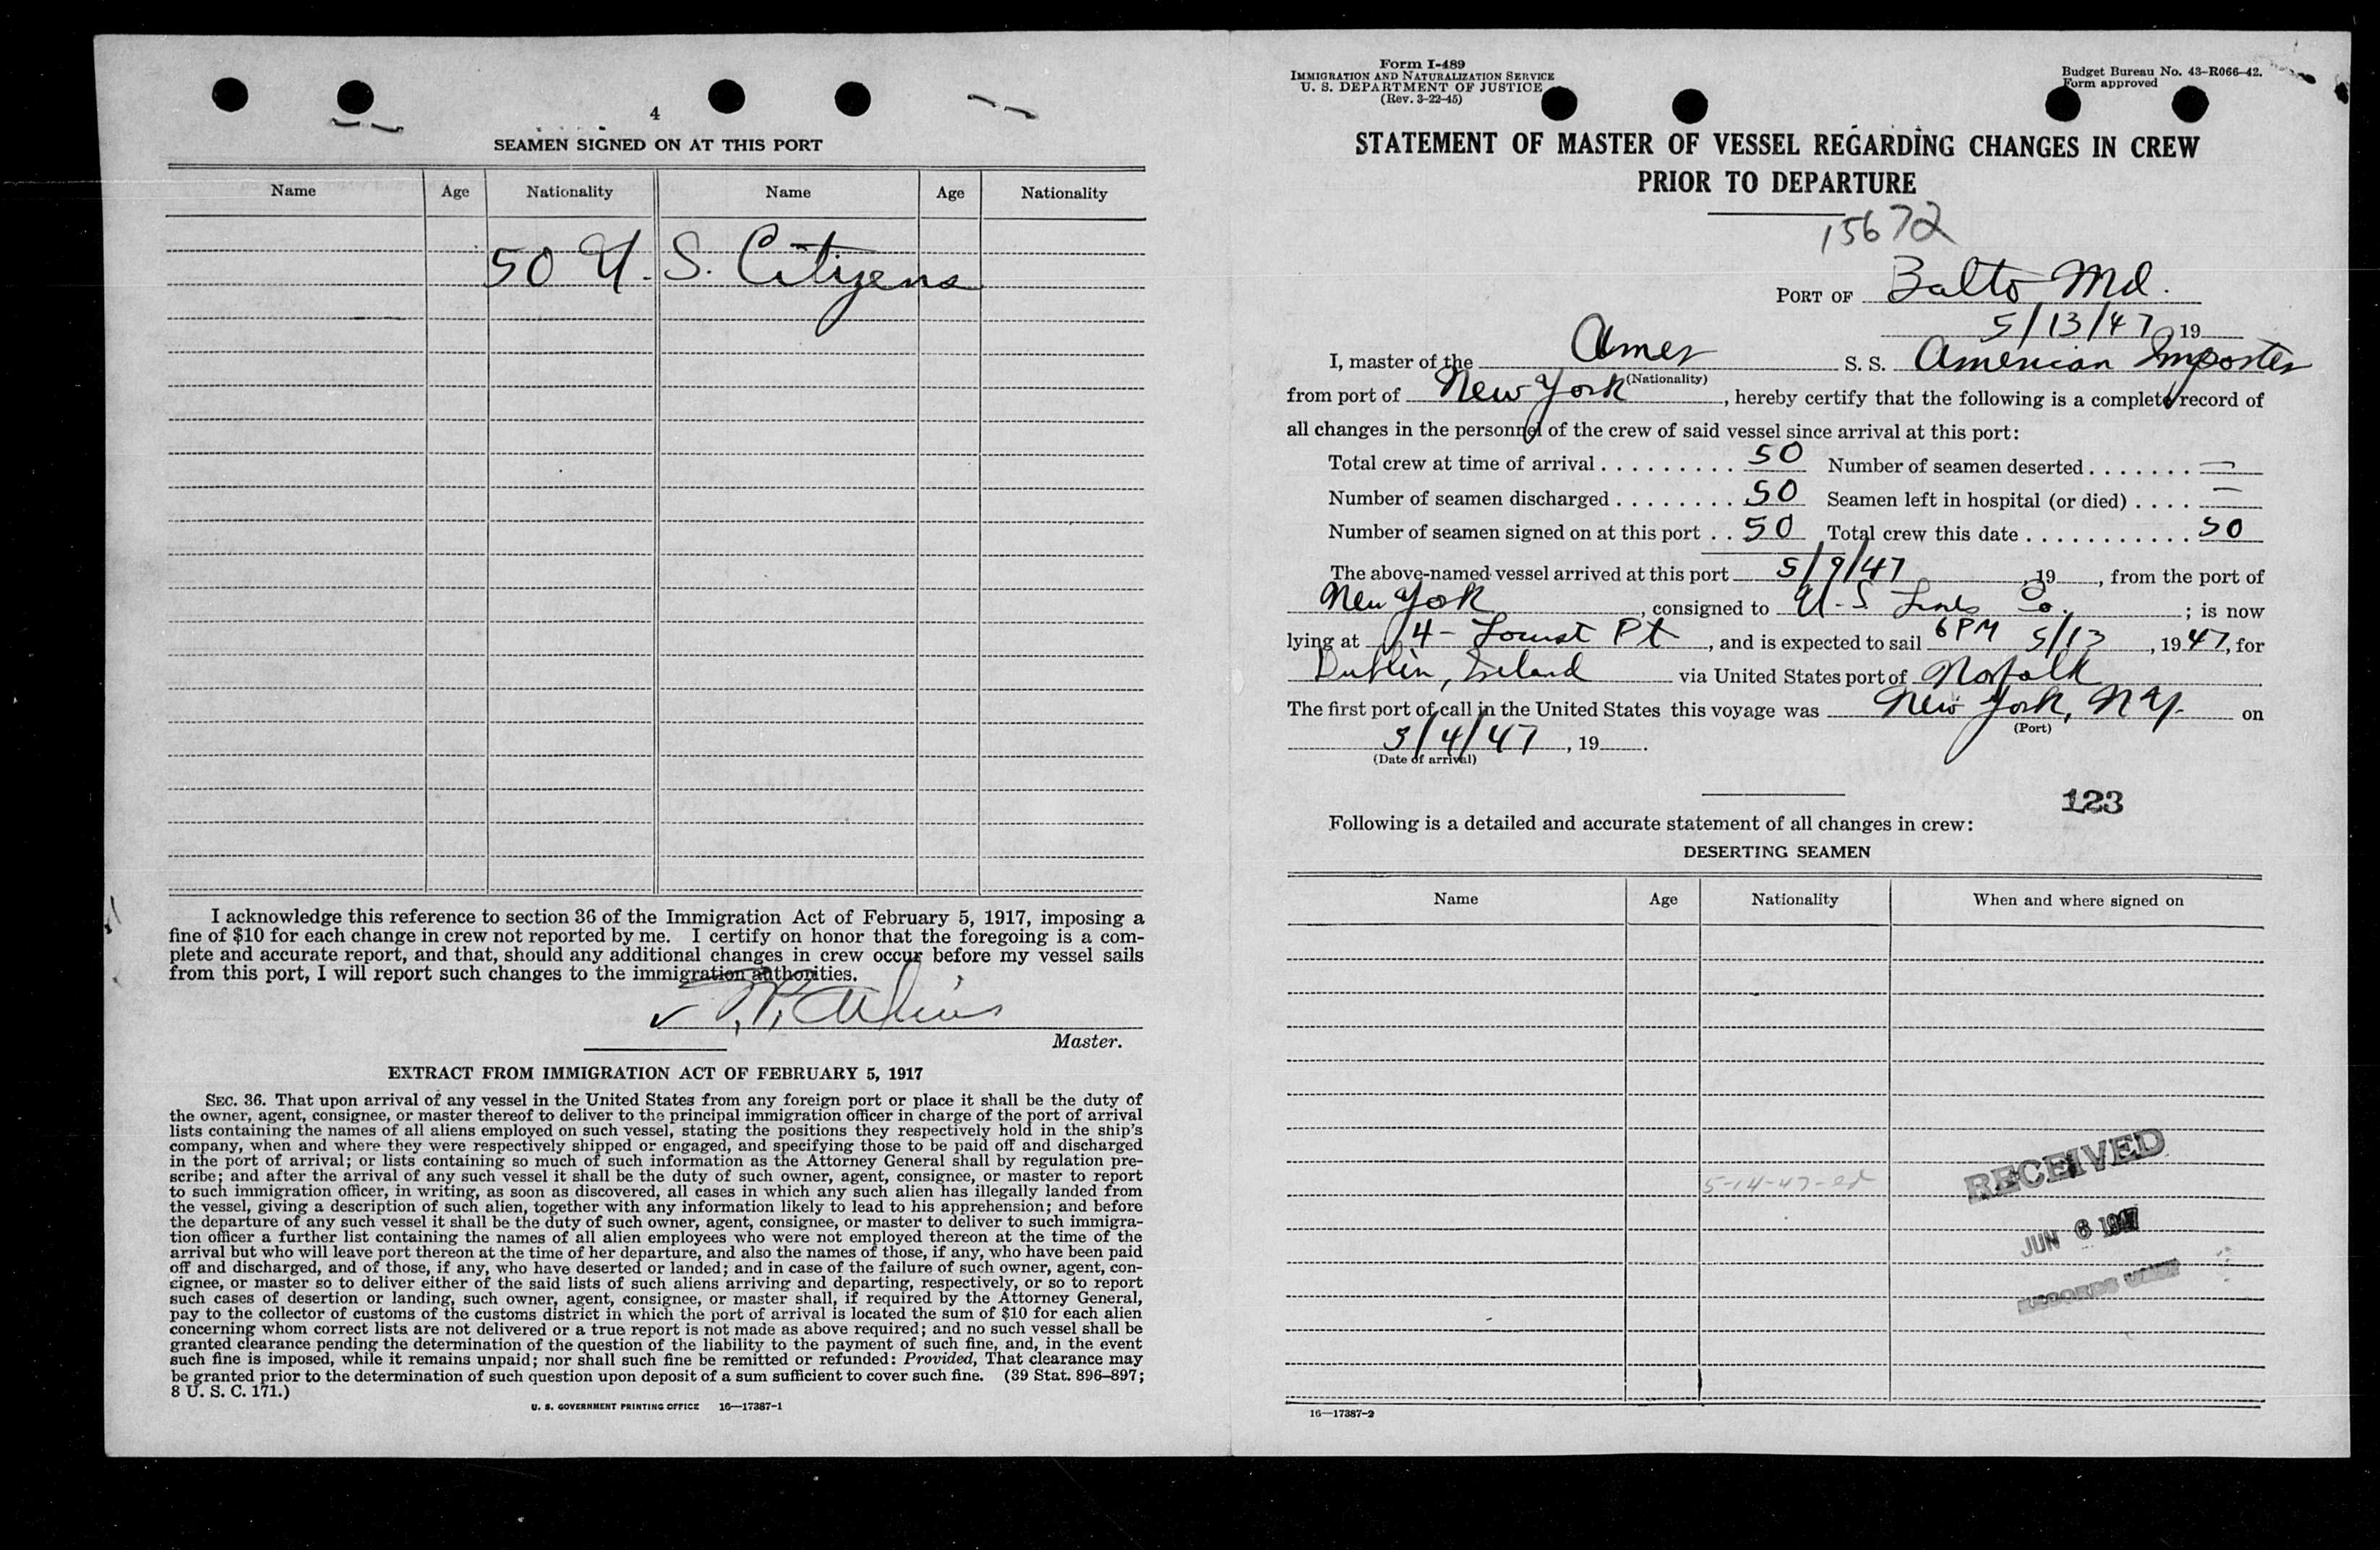 4
SEAMEN SIGNED ON AT THIS PORT
Name Age Nationality Name Age Nationality
50 U. S. Citizens
I acknowledge this reference to section 36 of the Immigration Act of February 5, 1917, imposing a
fine of $10 for each change in crew not reported by me. I certify on honor that the foregoing is a com-
plete and accurate report, and that, should any additional changes in crew occur before my vessel sails
from this port, I will report such changes to the immigration authorities.
Master.
EXTRACT FROM IMMIGRATION ACT OF FEBRUARY 5, 1917
SEC. 36. That upon arrival of any vessel in the United States from any foreign port or place it shall be the duty of
the owner, agent, consignee, or master thereof to deliver to the principal immigration officer in charge of the port of arrival
lists containing the names of all aliens employed on such vessel, stating the positions they respectively hold in the ship's
company, when and where they were respectively shipped or engaged, and specifying those to be paid off and discharged
in the port of arrival; or lists containing so much of such information as the Attorney General shall by regulation pre-
scribe; and after the arrival of any such vessel it shall be the duty of such owner, agent, consignee, or master to report
to such immigration officer, in writing, as soon as discovered, all cases in which any such alien has illegally landed from
the vessel, giving a description of such alien, together with any information likely to lead to his apprehension; and before
the departure of any such vessel it shall be the duty of such owner, agent, consignee, or master to deliver to such immigra-
tion officer a further list containing the names of all alien employees who were not employed thereon at the time of the
arrival but who will leave port thereon at the time of her departure, and also the names of those, if any, who have been paid
off and discharged, and of those, if any, who have deserted or landed; and in case of the failure of such owner, agent, con-
signee, or master so to deliver either of the said lists of such aliens arriving and departing, respectively, or so to report
such cases of desertion or landing, such owner, agent, consignee, or master shall, if required by the Attorney General,
pay to the collector of customs of the customs district in which the port of arrival is located the sum of $10 for each alien
concerning whom correct lists are not delivered or a true report is not made as above required; and no such vessel shall be
granted clearance pending the determination of the question of the liability to the payment of such fine, and, in the event
such fine is imposed, while it remains unpaid; nor shall such fine be remitted or refunded: Provided, That clearance may
be granted prior to the determination of such question upon deposit of a sum sufficient to cover such fine. (39 Stat. 896–897;
8 U. S. C. 171.)
U. S. GOVERNMENT PRINTING OFFICE 16—17387-1
Form I-489
IMMIGRATION AND NATURALIZATION SERVICE
U. S. DEPARTMENT OF JUSTICE
(Rev. 3-22-45)
Budget Bureau No. 43-R066-42.
Form approved
STATEMENT OF MASTER OF VESSEL REGARDING CHANGES IN CREW
PRIOR TO DEPARTURE
15672
PORT OF Balto Md.
5/13/47 19
I, master of the Amer S. S. American Importer
(Nationality)
from port of New York, hereby certify that the following is a complete record of
all changes in the personnel of the crew of said vessel since arrival at this port:
Total crew at time of arrival 50 Number of seamen deserted —
Number of seamen discharged 50 Seamen left in hospital (or died) —
Number of seamen signed on at this port 50 Total crew this date 50
The above-named vessel arrived at this port 5/9/47, 19, from the port of
New York, consigned to U. S. Lines Co.; is now
lying at 4 - Locust Pt, and is expected to sail 6 PM 5/13, 1947, for
Dublin, Ireland via United States port of Norfolk
The first port of call in the United States this voyage was New York, N Y. on
(Port)
5/4/47, 19.
(Date of arrival)
123
Following is a detailed and accurate statement of all changes in crew:
DESERTING SEAMEN
Name Age Nationality When and where signed on
5-14-47-ed
RECEIVED
JUN 6 1947
RECORDS UNIT
16—17387-2